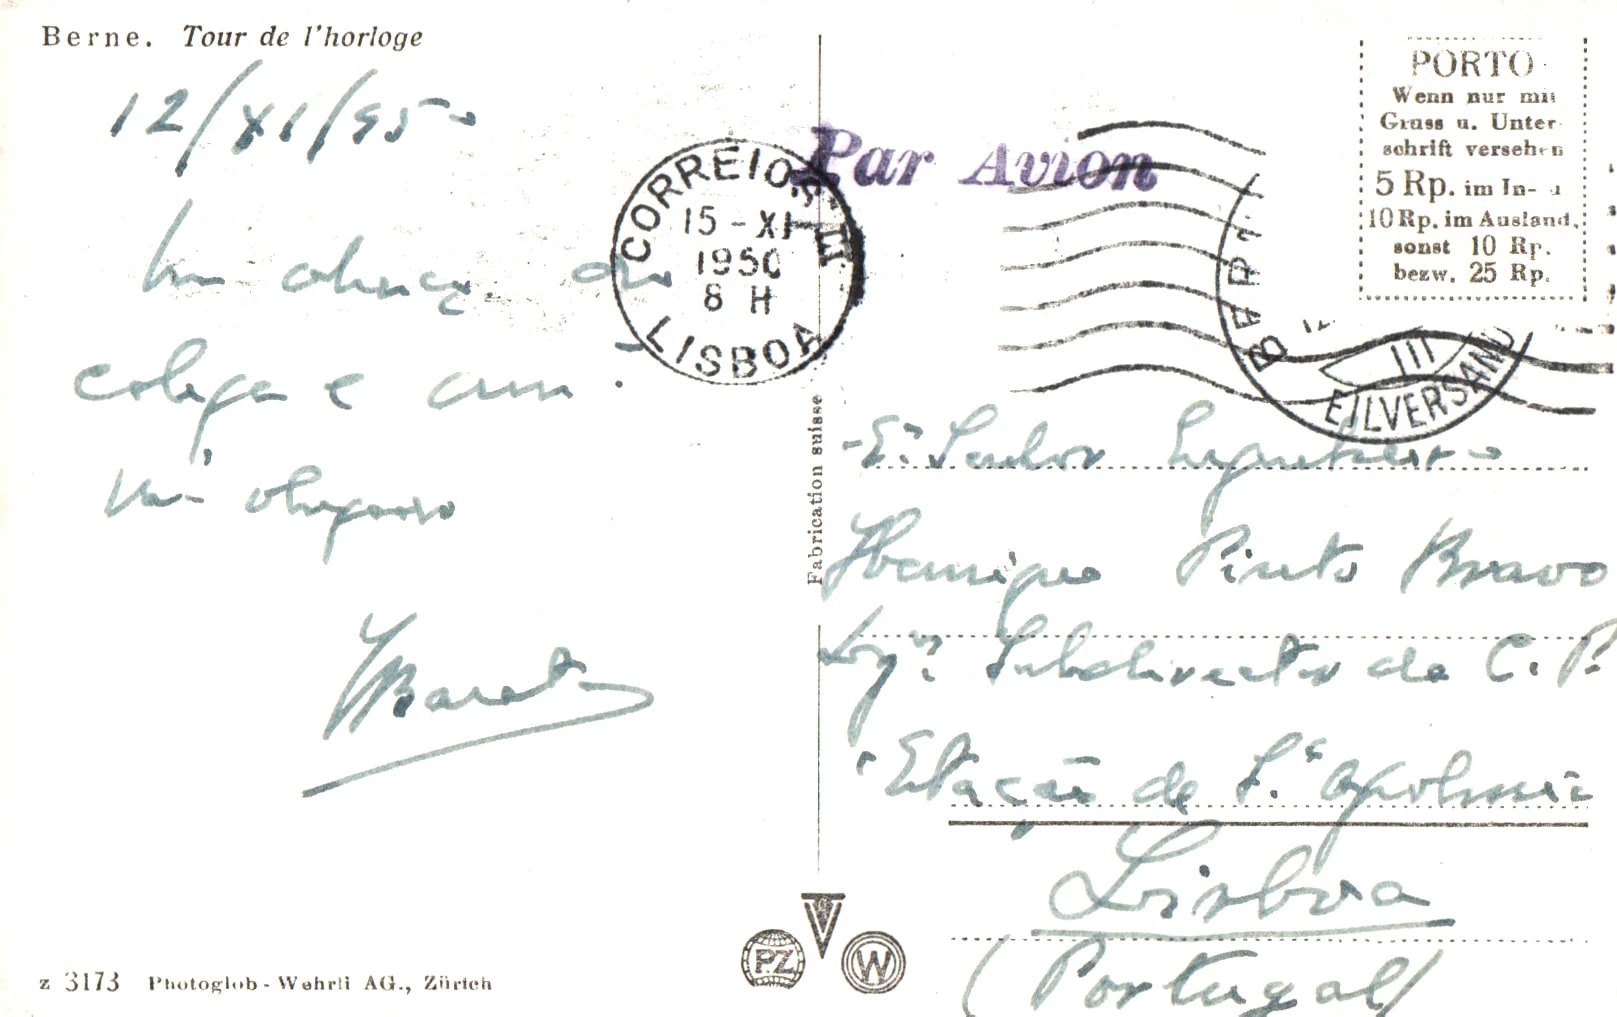 Berne. Tour de l'horloge
12/XI/950
Um abraço do
colega e am
m. obrigado
Par Avion
CORREIOS
15-XI
1950
8 H
LISBOA
PORTO
Wenn nur mit
Gruss u. Unter-
schrift versehen
5 Rp. im In- u
10 Rp. im Ausland,
sonst 10 Rp.
bezw. 25 Rp.
III
EILVERSAND
Fabrication suisse
Senhor Engenheiro
Henrique Pinto Bravo
Subdirector da C. P.
Estação de S.ta Apolonia
Lisboa
(Portugal)
PZ
W
z 3173 Photoglob-Wehrli AG., Zürich